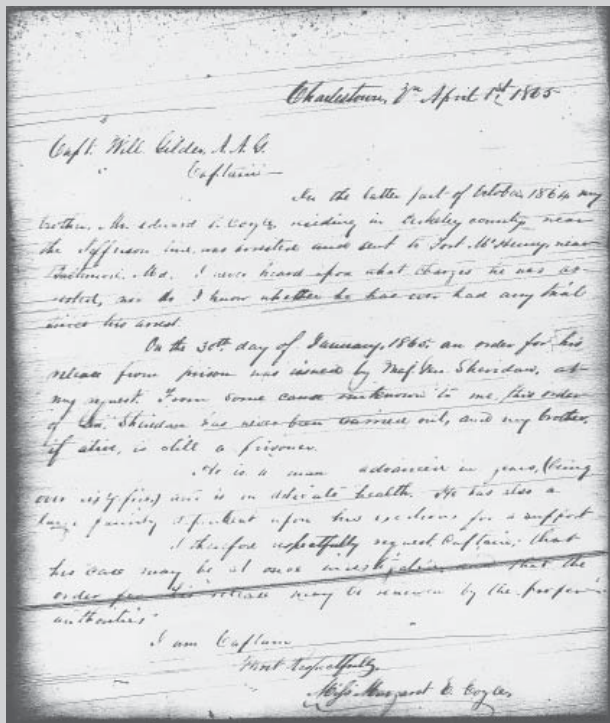 Charlestown, Va April 1st, 1865
Capt. Will Gilder, A.A.G.
Captain—
In the latter part of October, 1864 my
brother, Mr. Edward C. Coyle, residing in Berkeley county near
the Jefferson line, was arrested and sent to Fort McHenry, near
Baltimore, Md. I never heard upon what charges he was ar-
rested, nor do I know whether he has ever had any trial
since his arrest.
On the 30th day of January, 1865, an order for his
release from prison was issued by Maj. Gen. Sheridan, at
my request. From some cause unknown to me, this order
of Gen. Sheridan has never been carried out, and my brother,
if alive, is still a prisoner.
He is a man advanced in years, (being
over sixty five) and is in delicate health. He has also a
large family dependent upon his exertions for a support
I therefore respectfully request, Captain, that
his case may be at once investigated and that the
order for his release may be renewed by the proper
authorities
I am Captain
Most respectfully,
Miss Margaret E. Coyle,